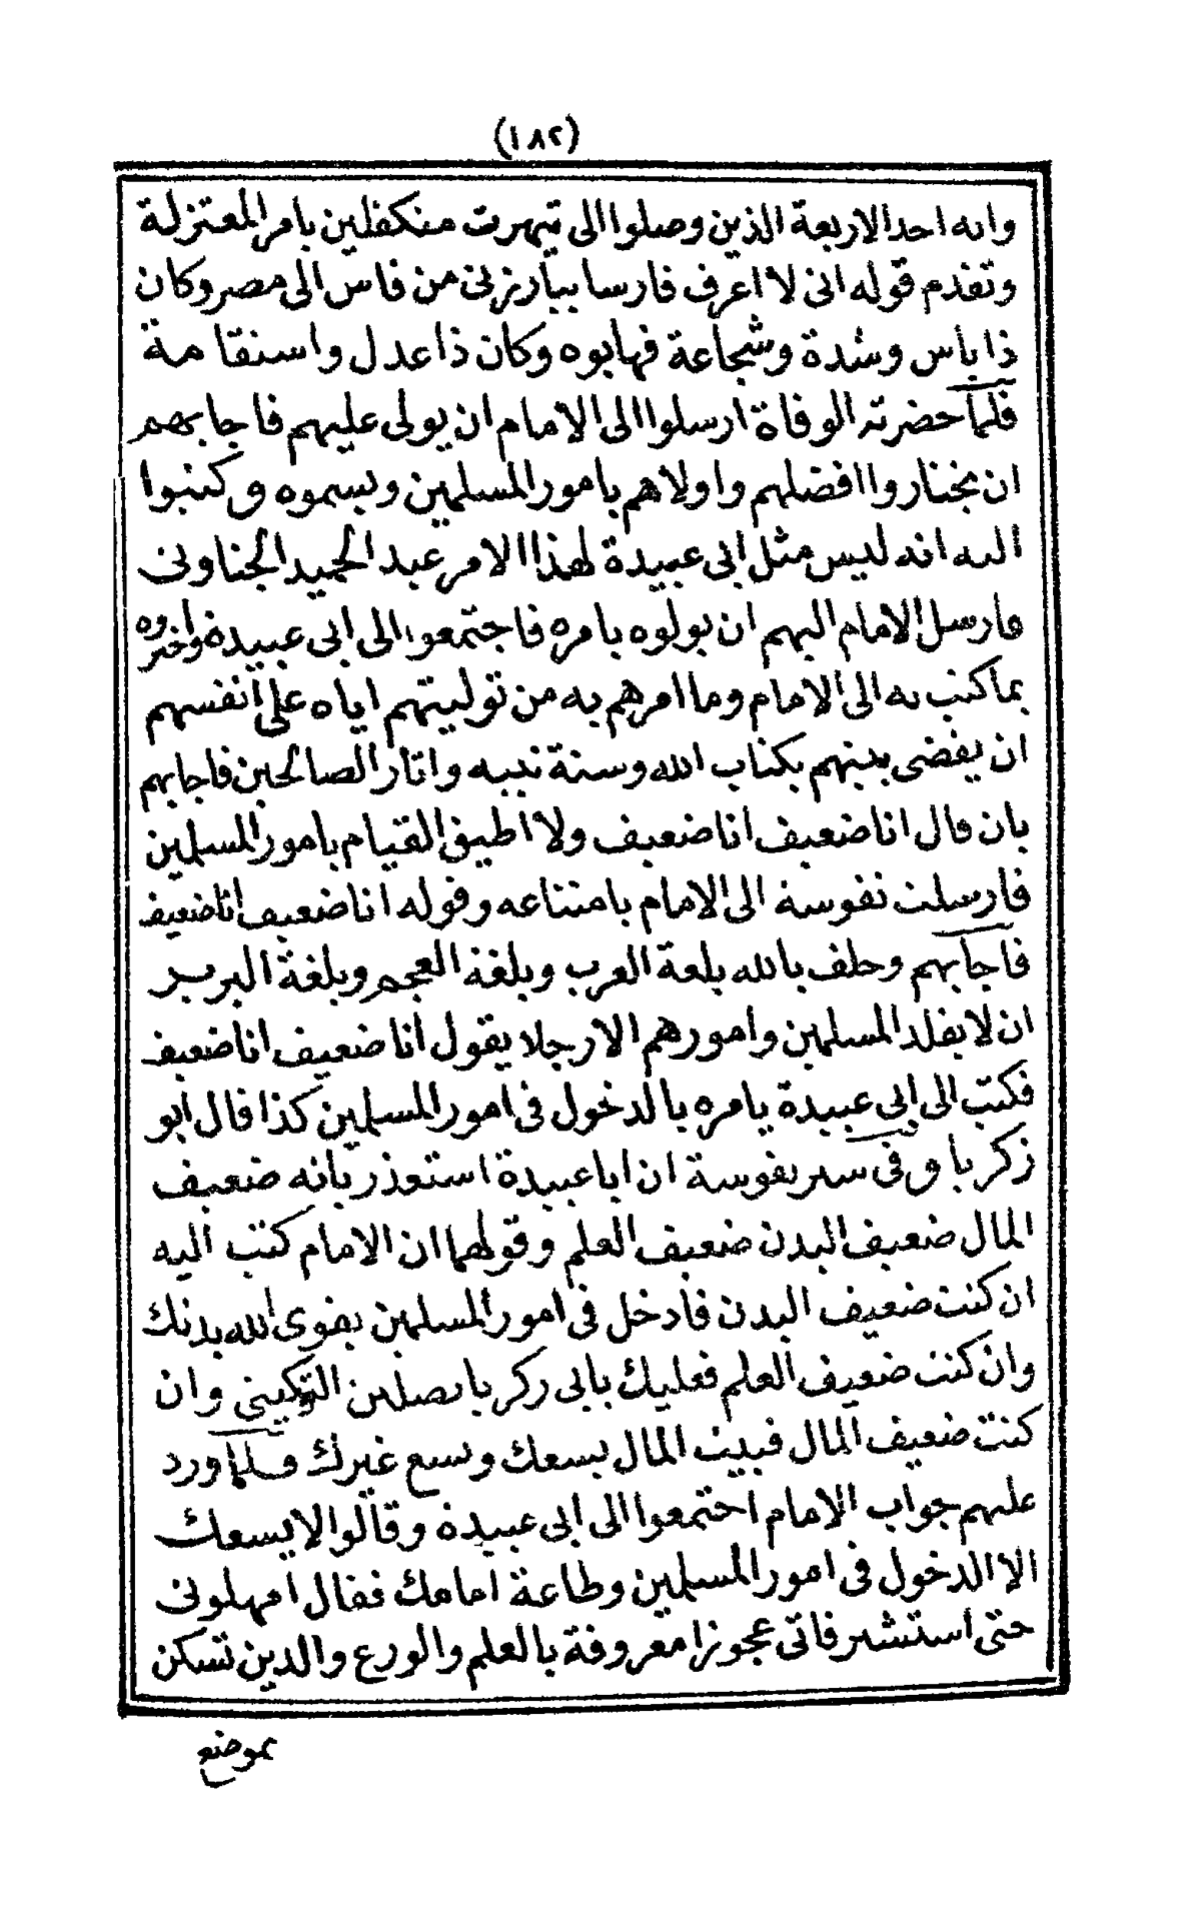 (١٨٢)
وانه احد الاربعة الذين وصلوا الى تيهرت متكفلين بامر المعتزلة
وتقدم قوله انى لا اعرف فارسا يبارزنى من فاس الى مصر وكان
ذا باس وشدة وشجاعة فهابوه وكان ذا عدل واستقامة
فلما حضرته الوفاة ارسلوا الى الامام ان يولى عليهم فاجابهم
ان يختاروا افضلهم واولاهم بامور المسلمين ويسموه وكتبوا
اليه انه ليس مثل ابى عبيدة لهذا الامر عبد الحميد الجناونى
فارسل الامام اليهم ان يولوه بامره فاجتمعوا الى ابى عبيدة واخبروه
بما كتب به الى الامام وما امرهم به من توليتهم اياه على انفسهم
ان يقضى بينهم بكتاب الله وسنة نبيه واثار الصالحين فاجابهم
بان قال انا ضعيف انا ضعيف ولا اطيق القيام بامور المسلمين
فارسلت نفوسة الى الامام بامتناعه وقوله انا ضعيف انا ضعيف
فاجابهم وحلف بالله بلغة العرب وبلغة العجم وبلغة البربر
ان لا يقلد المسلمين وامورهم الا رجلا يقول انا ضعيف انا ضعيف
فكتب الى ابى عبيدة يامره بالدخول فى امور المسلمين كذا قال ابو
زكريا وفى سير نفوسة ان ابا عبيدة استعذر بانه ضعيف
المال ضعيف البدن ضعيف العلم وقولهما ان الامام كتب اليه
ان كنت ضعيف البدن فادخل فى امور المسلمين يقوى الله بدنك
وان كنت ضعيف العلم فعليك بابى زكريا يصلين التوكيتى وان
كنت ضعيف المال فبيت المال يسعك ويسع غيرك فلما ورد
عليهم جواب الامام اجتمعوا الى ابى عبيدة وقالوا لا يسعك
الا الدخول فى امور المسلمين وطاعة امامك فقال امهلونى
حتى استشير فاتى عجوزا معروفة بالعلم والورع والدين تسكن
بموضع